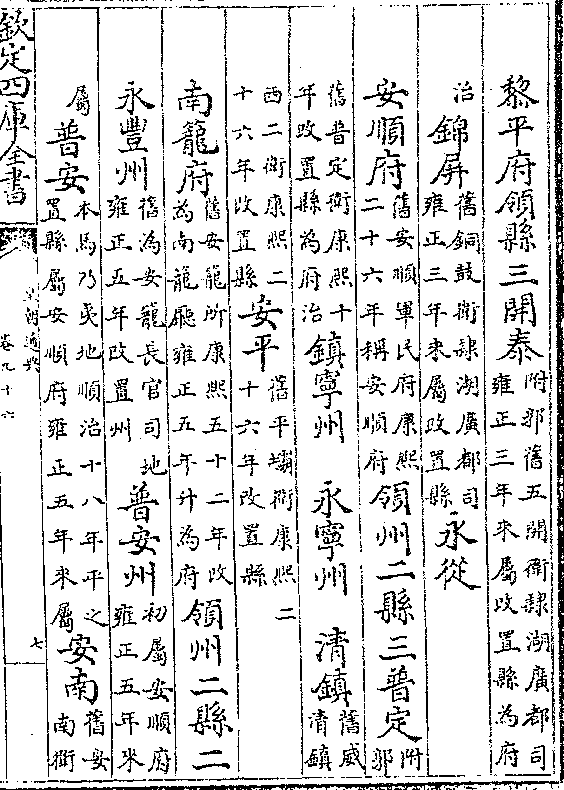 黎平府領縣三開泰附郭舊五開衛隸湖廣都司雍正三年來屬改置縣為府
治錦屏舊銅鼓衛隸湖廣都司雍正三年來屬改置縣永從
安順府舊安順軍民府康熙二十六年稱安順府領州二縣三普定附郭
舊普定衛康熙十年改置縣為府治鎮寧州 永寧州 清鎮舊威清鎮
西二衛康熙二十六年改置縣安平舊平壩衛康熙二十六年改置縣
南籠府舊安龍所康熙五十二年改為南龍廳雍正五年升為府領州二縣二
永豐州舊為安龍長官司地雍正五年改置州普安州初屬安順府雍正五年來
屬普安本馬乃夷地順治十八年平之置縣屬安順府雍正五年來屬安南舊安南衛
欽定四庫全書
皇朝通典
卷九十六
七